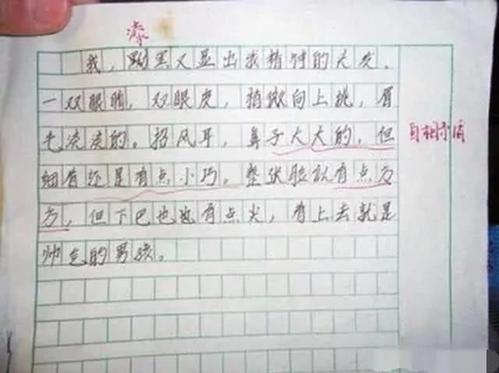 我，黝黑又显出我精神的大发，
一双眼睛，双眼皮，稍微向上挑，眉
毛淡淡的。招风耳，鼻子大大的，但
细看还是有点小巧。整张脸就有点方
方，但下巴也也有点尖，看上去就是
帅气的男孩。
自相矛盾